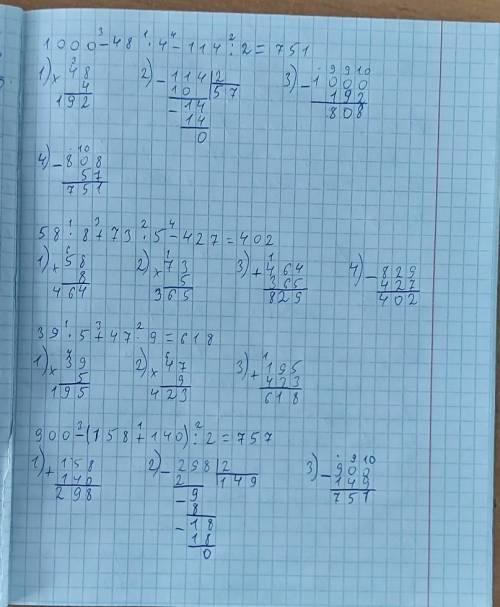 1000-48·4-114:2=751
1) × 48 4 192 2) - 114 | 2 10 57 - 14 14 0 3) - 1000 192 808
4) - 808 57 751
58·8+73·5-427=402
1) × 58 8 464 2) × 73 5 365 3) + 464 365 829 4) - 829 427 402
39·5+47·9=618
1) × 39 5 195 2) × 47 9 423 3) + 195 423 618
900-(158+140):2=757
1) + 158 140 298 2) - 298 | 2 2 149 - 9 8 - 18 18 0 3) - 900 149 751